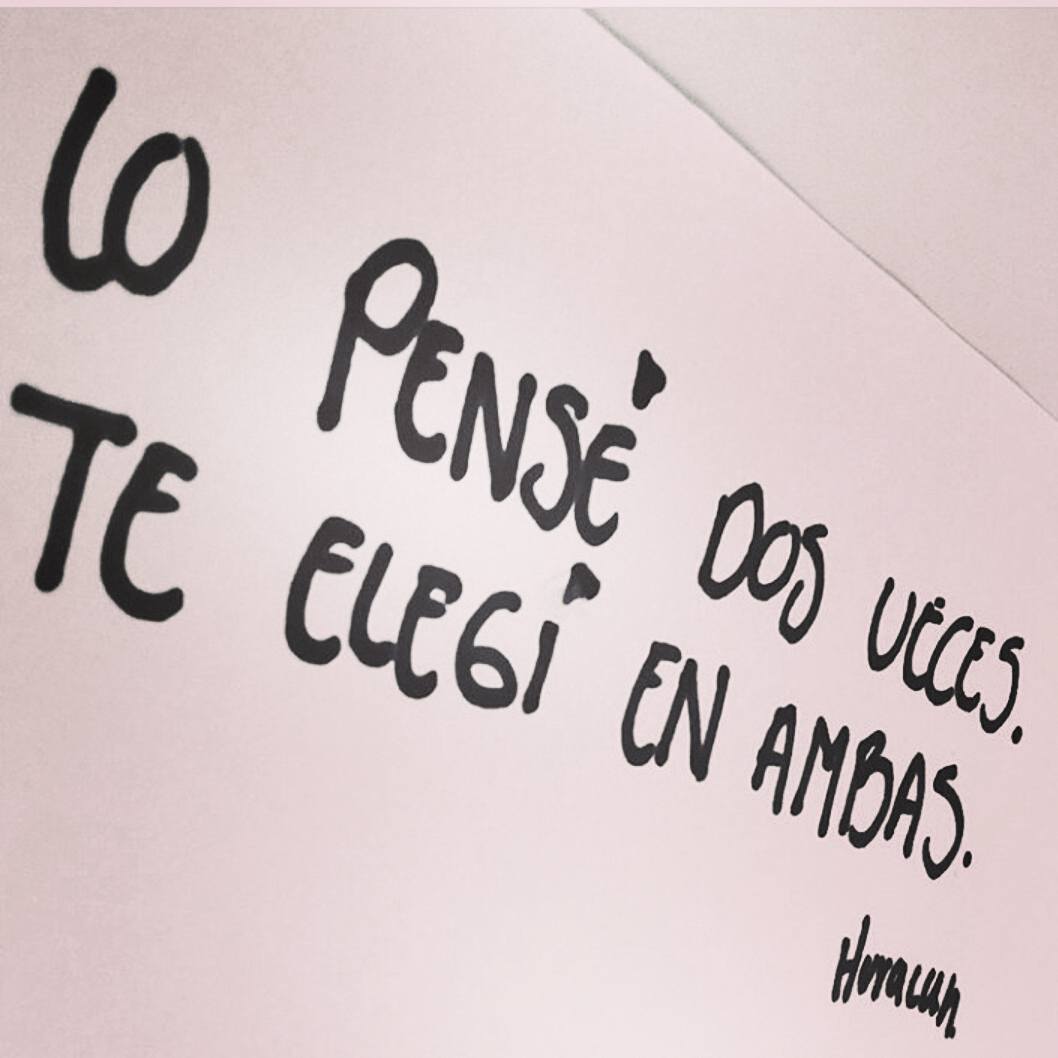 LO PENSÉ DOS VECES.
TE ELEGÍ EN AMBAS.
Huracan